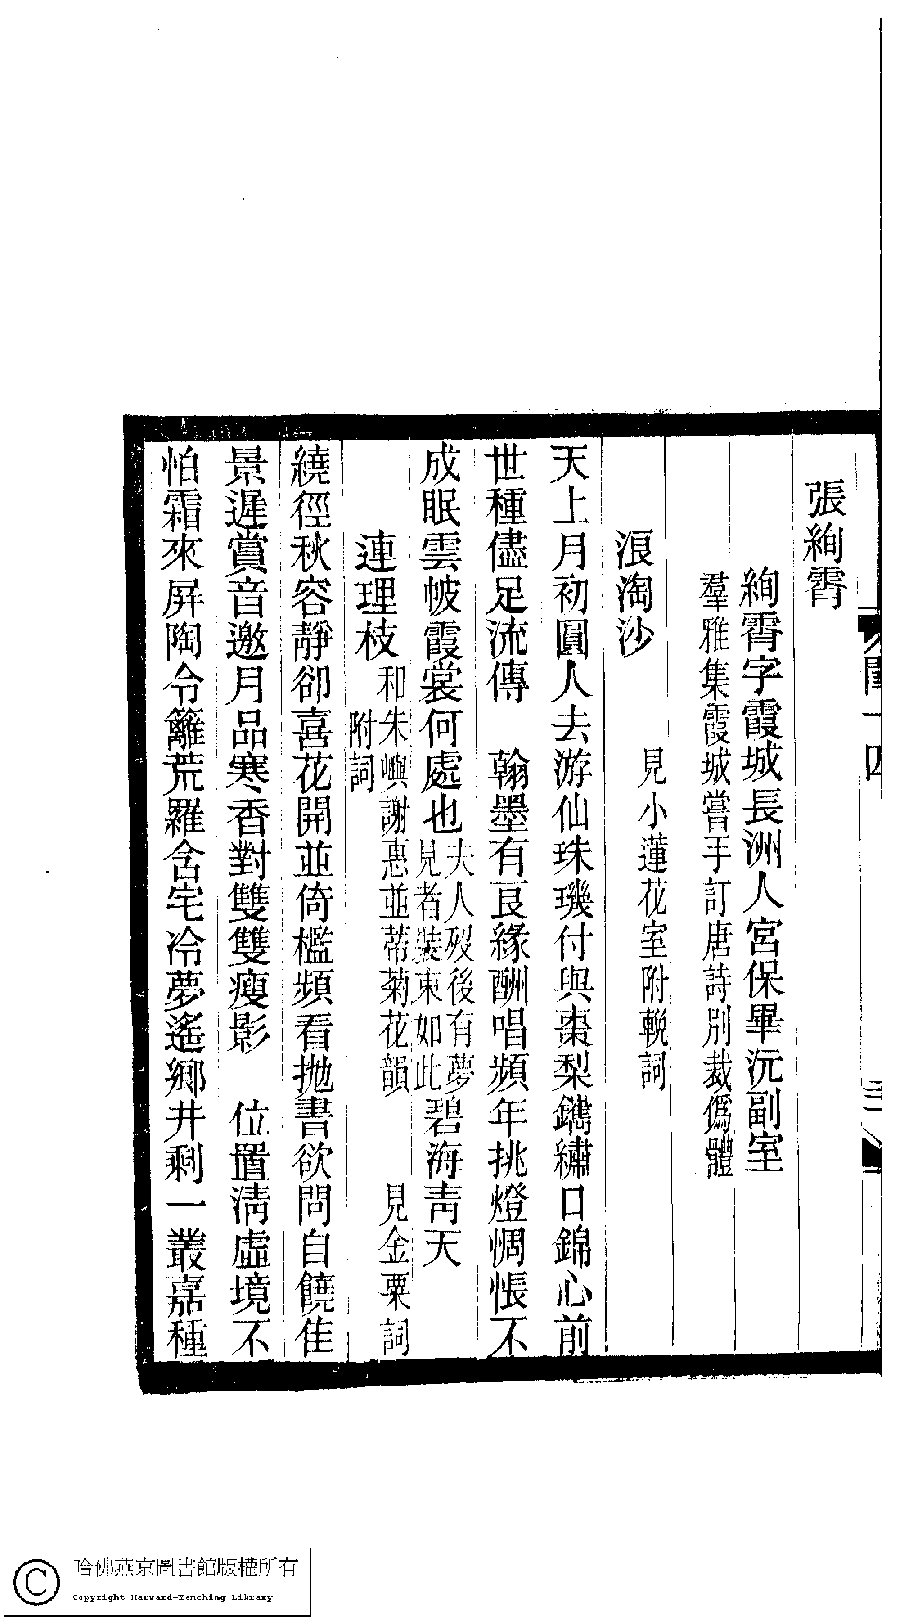 張絢霄
絢霄字霞城長洲人宮保畢沅副室
羣雅集霞城嘗手訂唐詩別裁僞體
浪淘沙
見小蓮花室附輓詞
天上月初圓人去游仙珠璣付與棗梨鐫繡口錦心前
世種儘足流傳　翰墨有良緣酬唱頻年挑燈惆悵不
成眠雲帔霞裳何處也夫人歿後有夢見者裝束如此碧海青天
連理枝
和朱嶼謝惠並蒂菊花韻
見金粟詞
附詞
繞徑秋容靜卻喜花開並倚檻頻看拋書欲問自饒佳
景遲賞音邀月品寒香對雙雙瘦影　位置清虛境不
怕霜來屏陶令籬荒羅含宅冷夢遙鄉井剩一叢嘉種
哈佛燕京圖書館版權所有
Copyright Harvard-Yenching Library